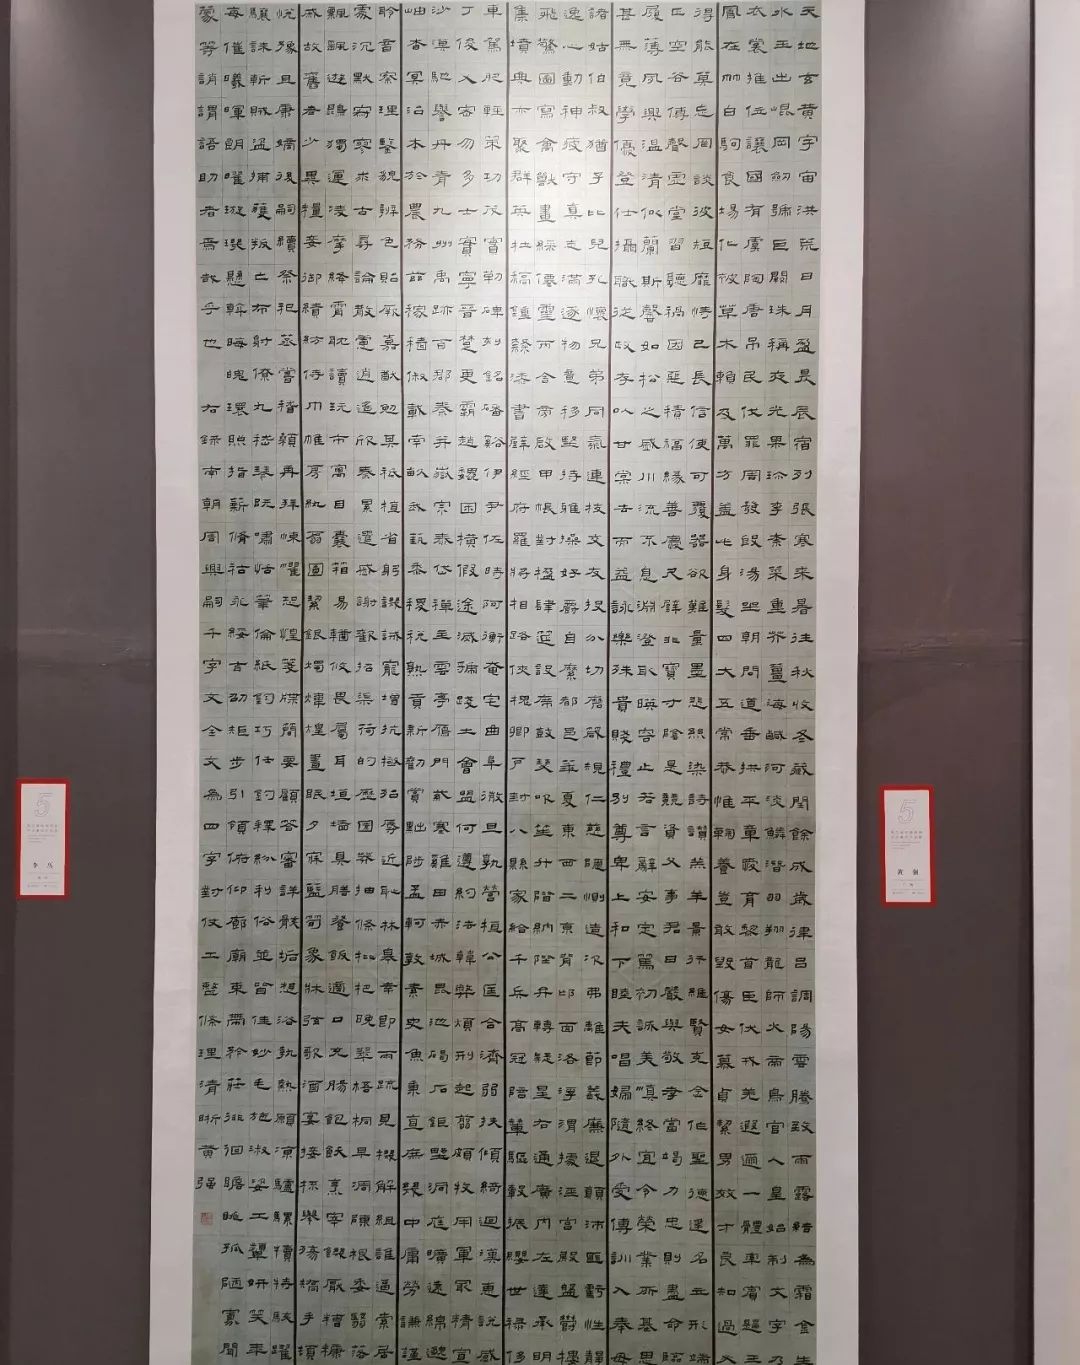 天地玄黃宇宙洪荒日月盈昃辰宿列張寒來暑往秋收冬藏閏餘成歲律呂調陽雲騰致雨露結為霜金生
水玉出崐岡劍號巨闕珠稱夜光果珍李柰菜重芥薑海鹹河淡鱗潛羽翔龍師火帝鳥官人皇始制文字乃
衣裳推位讓國有虞陶唐弔民伐罪周發殷湯坐朝問道垂拱平章愛育黎首臣伏戎羌遐邇一體率賓歸王
鳳在竹白駒食場化被草木賴及萬方蓋此身髮四大五常恭惟鞠養豈敢毀傷女慕貞絜男效才良知過必
得能莫忘罔談彼短靡恃己長信使可覆器欲難量墨悲絲染詩讚羔羊景行維賢克念作聖德建名立形端
正空谷傳聲虛堂習聽禍因惡積福緣善慶尺璧非寶寸陰是競資父事君曰嚴與敬孝當竭力忠則盡命臨
履薄夙興溫凊似蘭斯馨如松之盛川流不息淵澄取映容止若言辭安定篤初誠美慎終宜令榮業所基思
甚無竟學優登仕攝職從政存以甘棠去而益詠樂殊貴賤禮別尊卑上和下睦夫唱婦隨外受傅訓入奉母
諸姑伯叔猶子比兒孔懷兄弟同氣連枝交友投分切磨箴規仁慈隱惻造次弗離節義廉退顛沛匪虧性靜
逸心動神疲守真志滿逐物意移堅持雅操好爵自縻都邑華夏東西二京背邙面洛浮渭據涇宮殿盤鬱樓
飛驚圖寫禽獸畫綵僊靈丙舍傍啟甲帳對楹肆筵設席鼓瑟吹笙升階納陛弁轉疑星右通廣內左達承明
集墳典亦聚群英杜稿鍾隸漆書壁經府羅將相路俠槐卿戶封八縣家給千兵高冠陪輦驅轂振纓世祿侈
車駕肥輕策功茂實勒碑刻銘磻谿伊尹佐時阿衡奄宅曲阜微旦孰營桓公匡合濟弱扶傾綺迴漢惠說感
丁俊乂密勿多士寔寧晉楚更霸趙魏困橫假途滅虢踐土會盟何遵約法韓弊煩刑起翦頗牧用軍最精宣
沙漠馳譽丹青九州禹跡百郡秦并嶽宗泰岱禪主雲亭雁門紫塞雞田赤城昆池碣石鉅野洞庭曠遠綿邈
岫杳冥治本於農務茲稼穡俶載南畝我藝黍稷稅熟貢新勸賞黜陟孟軻敦素史魚秉直庶幾中庸勞謙謹
聆音察理鑒貌辨色貽厥嘉猷勉其祗植省躬譏誡寵增抗極殆辱近恥林皋幸即兩疏見機解組誰逼索居
處沉默寂寥求古尋論散慮逍遙欣奏累遣慼謝歡招渠荷的歷園莽抽條枇杷晚翠梧桐早凋陳根委翳落
飄颻遊鵾獨運凌摩絳霄耽讀玩市寓目囊箱易輶攸畏屬耳垣墻具膳餐飯適口充腸飽飫烹宰飢厭糟糠
戚故舊老少異糧妾御績紡侍巾帷房紈扇圓絜銀燭煒煌晝眠夕寐藍筍象牀弦歌酒宴接杯舉觴矯手頓
悅豫且康嫡後嗣續祭祀蒸嘗稽顙再拜悚懼恐惶箋牒簡要顧答審詳骸垢想浴執熱願涼驢騾犢特駭躍
驤誅斬賊盜捕獲叛亡布射僚丸嵇琴阮嘯恬筆倫紙鈞巧任釣釋紛利俗並皆佳妙毛施淑姿工顰妍笑年
每催曦暉朗曜璇璣懸斡晦魄環照指薪脩祜永綏吉劭矩步引領俯仰廊廟束帶矜莊徘徊瞻眺孤陋寡聞
蒙等誚謂語助者焉哉乎也 右錄南朝周興嗣千字文全文為四字對仗工整條理清晰黃強
5
5